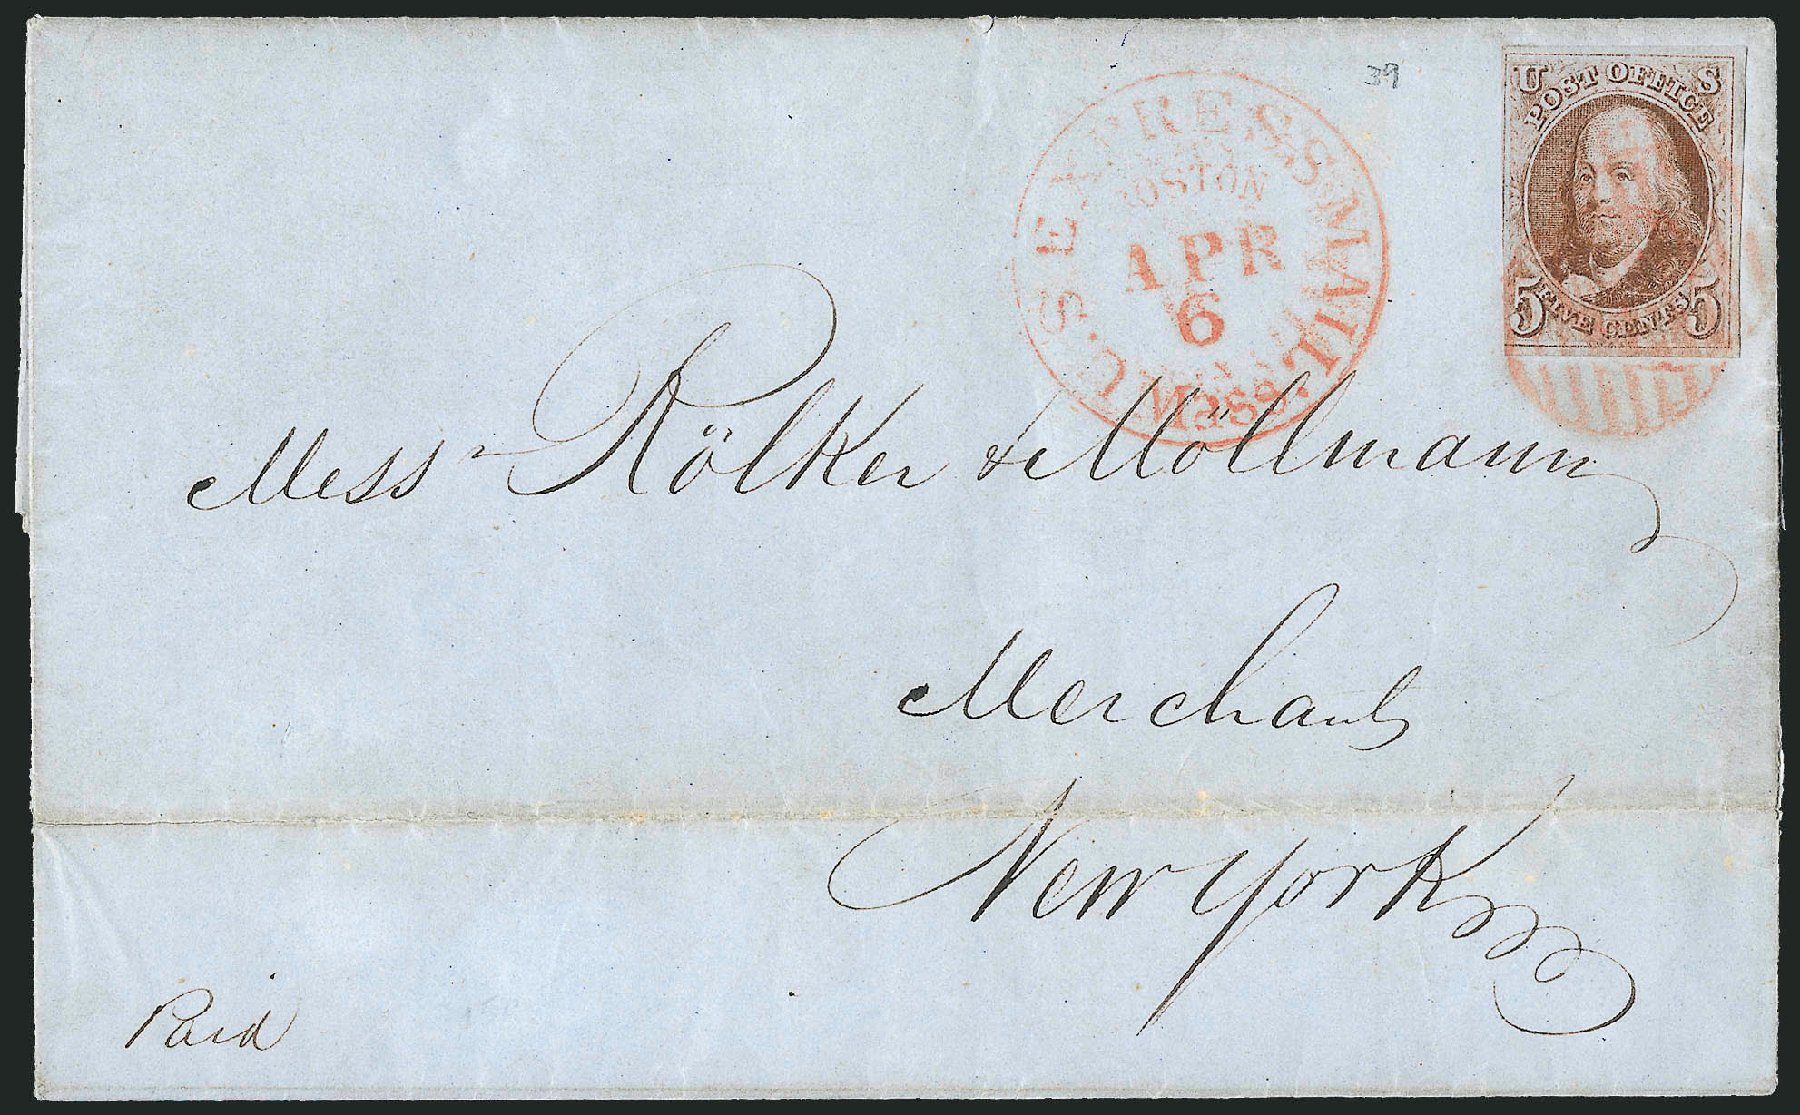 39
U S
POST OFFICE
5 FIVE CENTS 5
U.S. EXPRESS MAIL.
BOSTON
APR
6
MASS
Mess Rölker & Möllmann
Merchants
New York
Paid